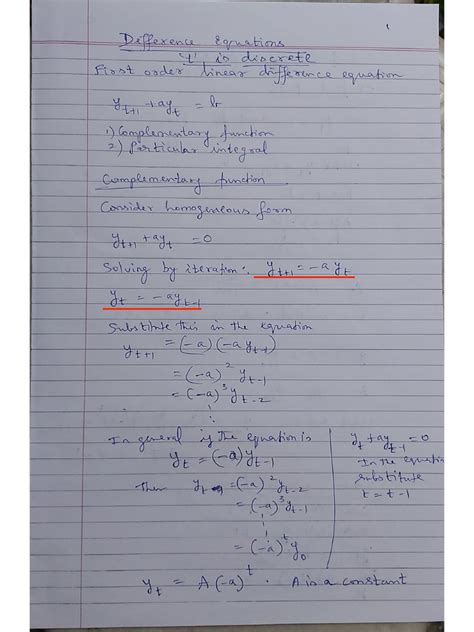 1
Difference Equations
't' is discrete
First order linear difference equation
y_{t+1} + ay_t = b
1) Complementary function
2) Particular integral
Complementary function
Consider homogeneous form
y_{t+1} + ay_t = 0
Solving by iteration:. y_{t+1} = -a y_t
y_t = -ay_{t-1}
Substitute this in the equation
y_{t+1} = (-a)(-a y_{t-1})
= (-a)^2 y_{t-1}
= (-a)^3 y_{t-2}
⋮
In general if the equation is
y_t = (-a)y_{t-1}
Then y_t = (-a)^2 y_{t-2}
= (-a)^3 y_{t-3}
⋮
= (-a)^t y_0
y_t + ay_{t-1} = 0
In the equation
substitute
t = t-1
y_t = A(-a)^t . A is a constant